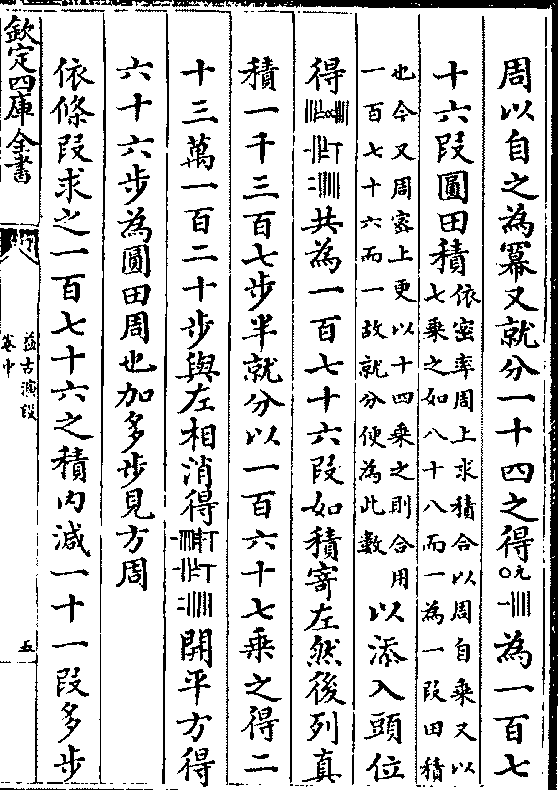 周以自之為冪又就分一十四之得〇元 為一百七
十六段圓田積
依密率周上求積合以周自乘又以
七乘之如八十八而一為一段田積
也今又周冪上更以十四乘之則合用
一百七十六而一故就分使為此數
以添入頭位
得 共為一百七十六段如積寄左然後列真
積一千三百七步半就分以一百六十七乘之得二
十三萬一百二十步與左相消得 開平方得
六十六步為圓田周也加多步見方周
依條段求之一百七十六之積內減一十一段多步
欽定四庫全書
益古演段
卷中
五